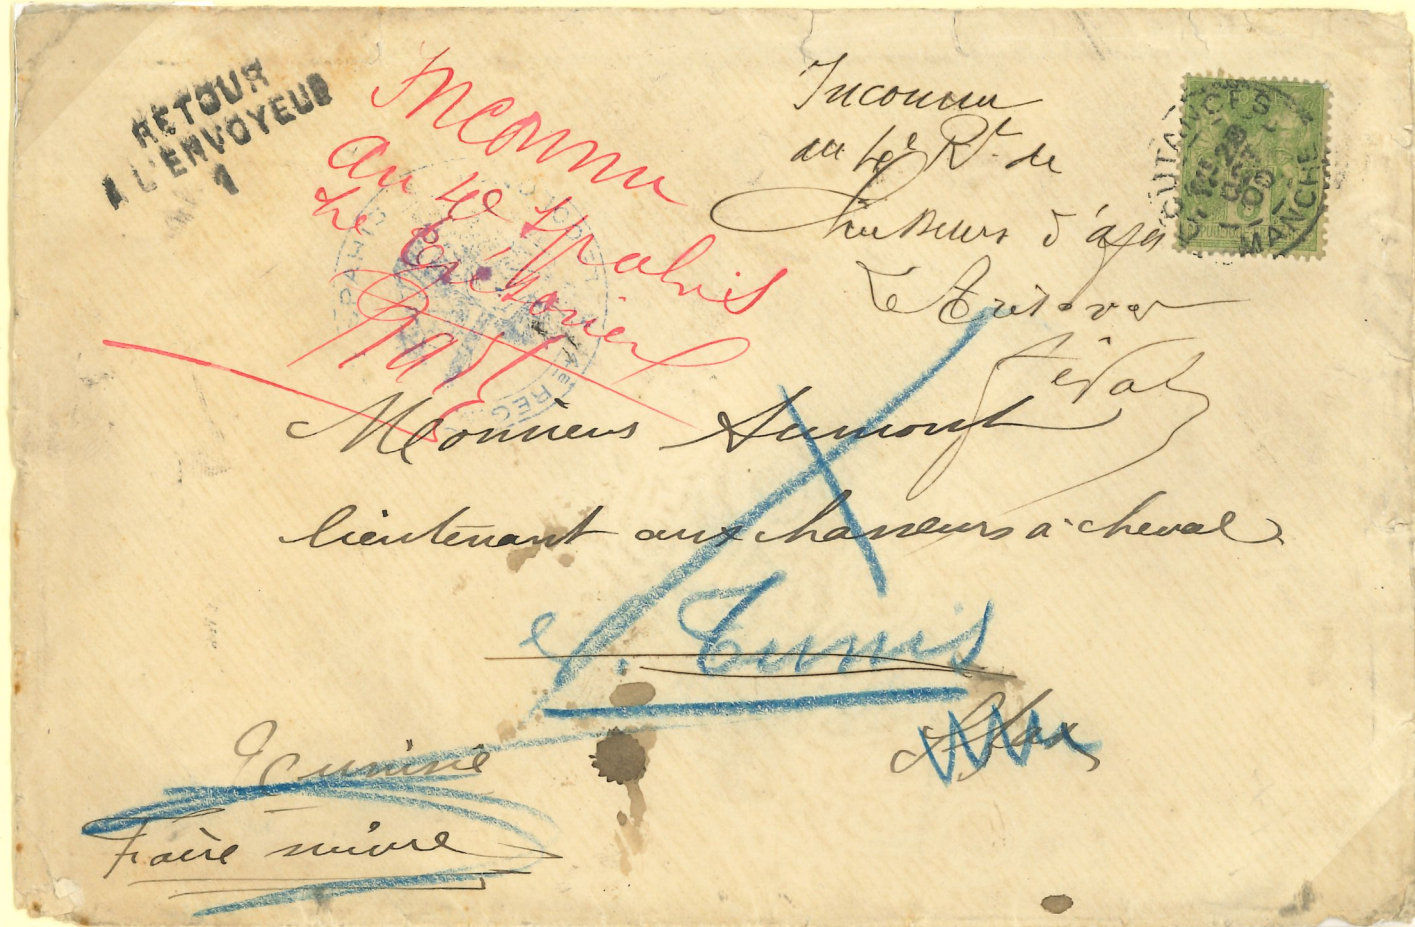 RETOUR
A L'ENVOYEUR
1
Inconnu
au 4e Spahis
Le Trésorier
Inconnu
au 4e Rt de
Chasseurs d'af
Le Trésorier
COUTANCES
MANCHE
PARIS
REG
Monsieur Aumont
lieutenant aux chasseurs à cheval
Tunis
Sfax
Tunisie
Faire suivre